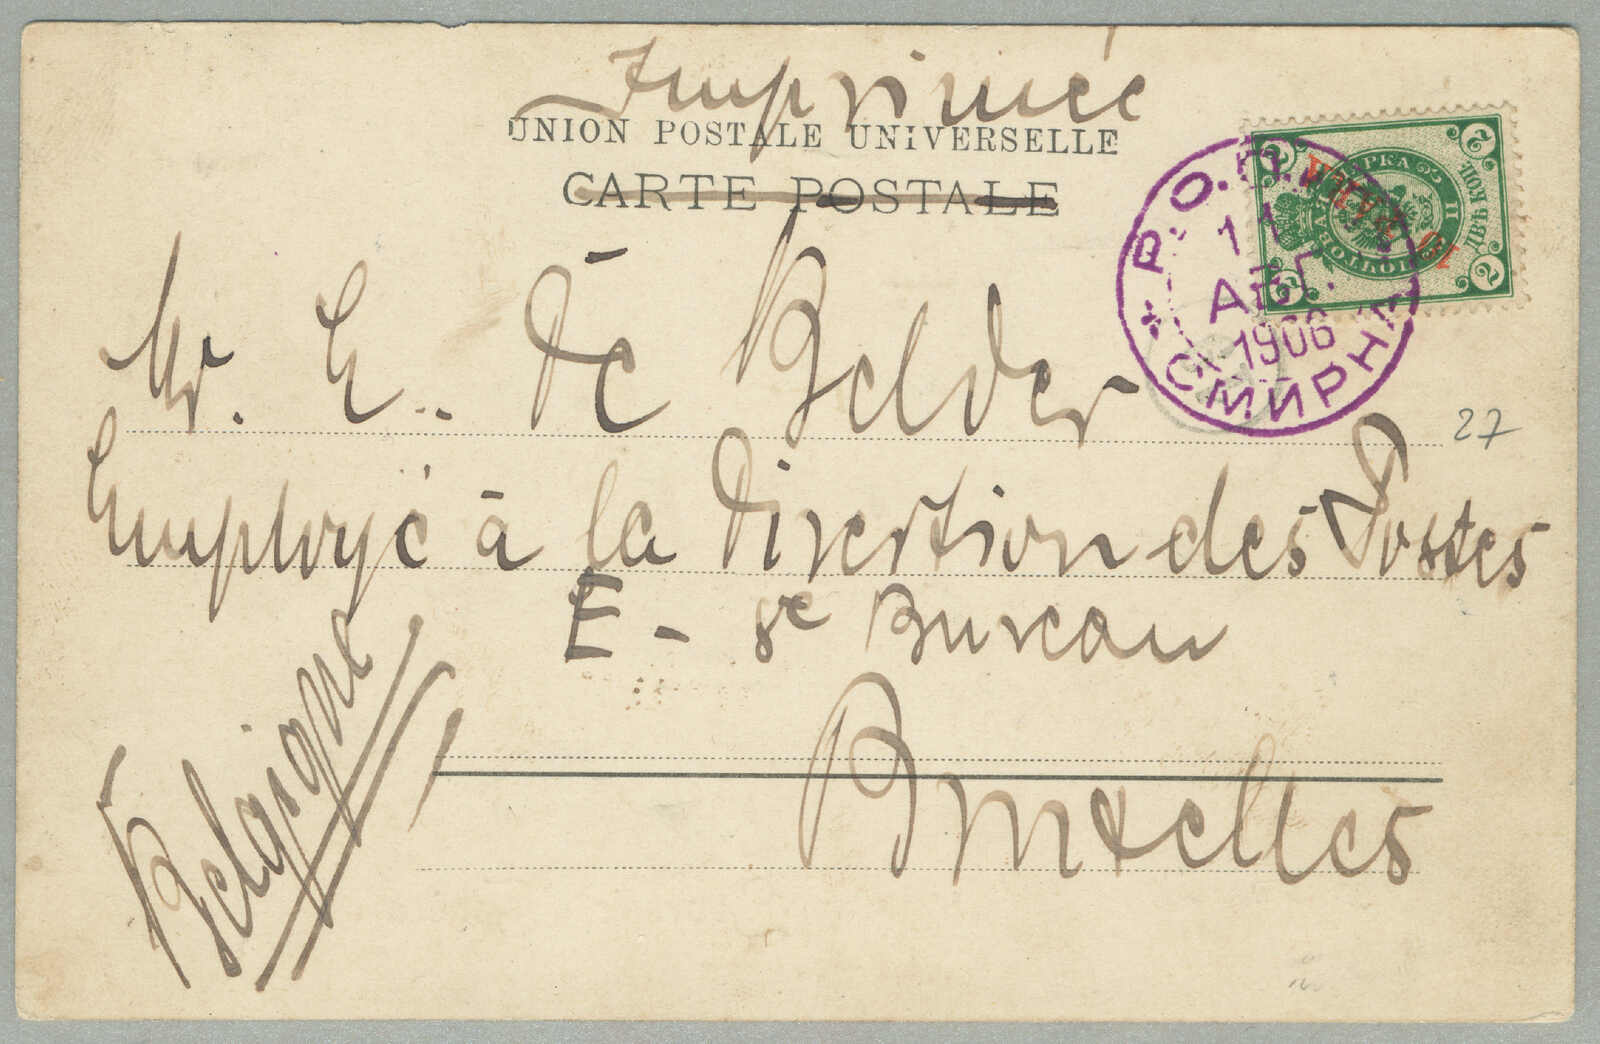 Imprimée
UNION POSTALE UNIVERSELLE
CARTE POSTALE
Mr. E. De Belder
Employé à la Direction des Postes
E - 8e Bureau
Bruxelles
Belgique
Р.О.П.
11
АВГ.
1906
СМИРНА
10 PARA
2
2
2
2
ДВѢ КОП.
МАРКА
ПОЧТОВАЯ
27